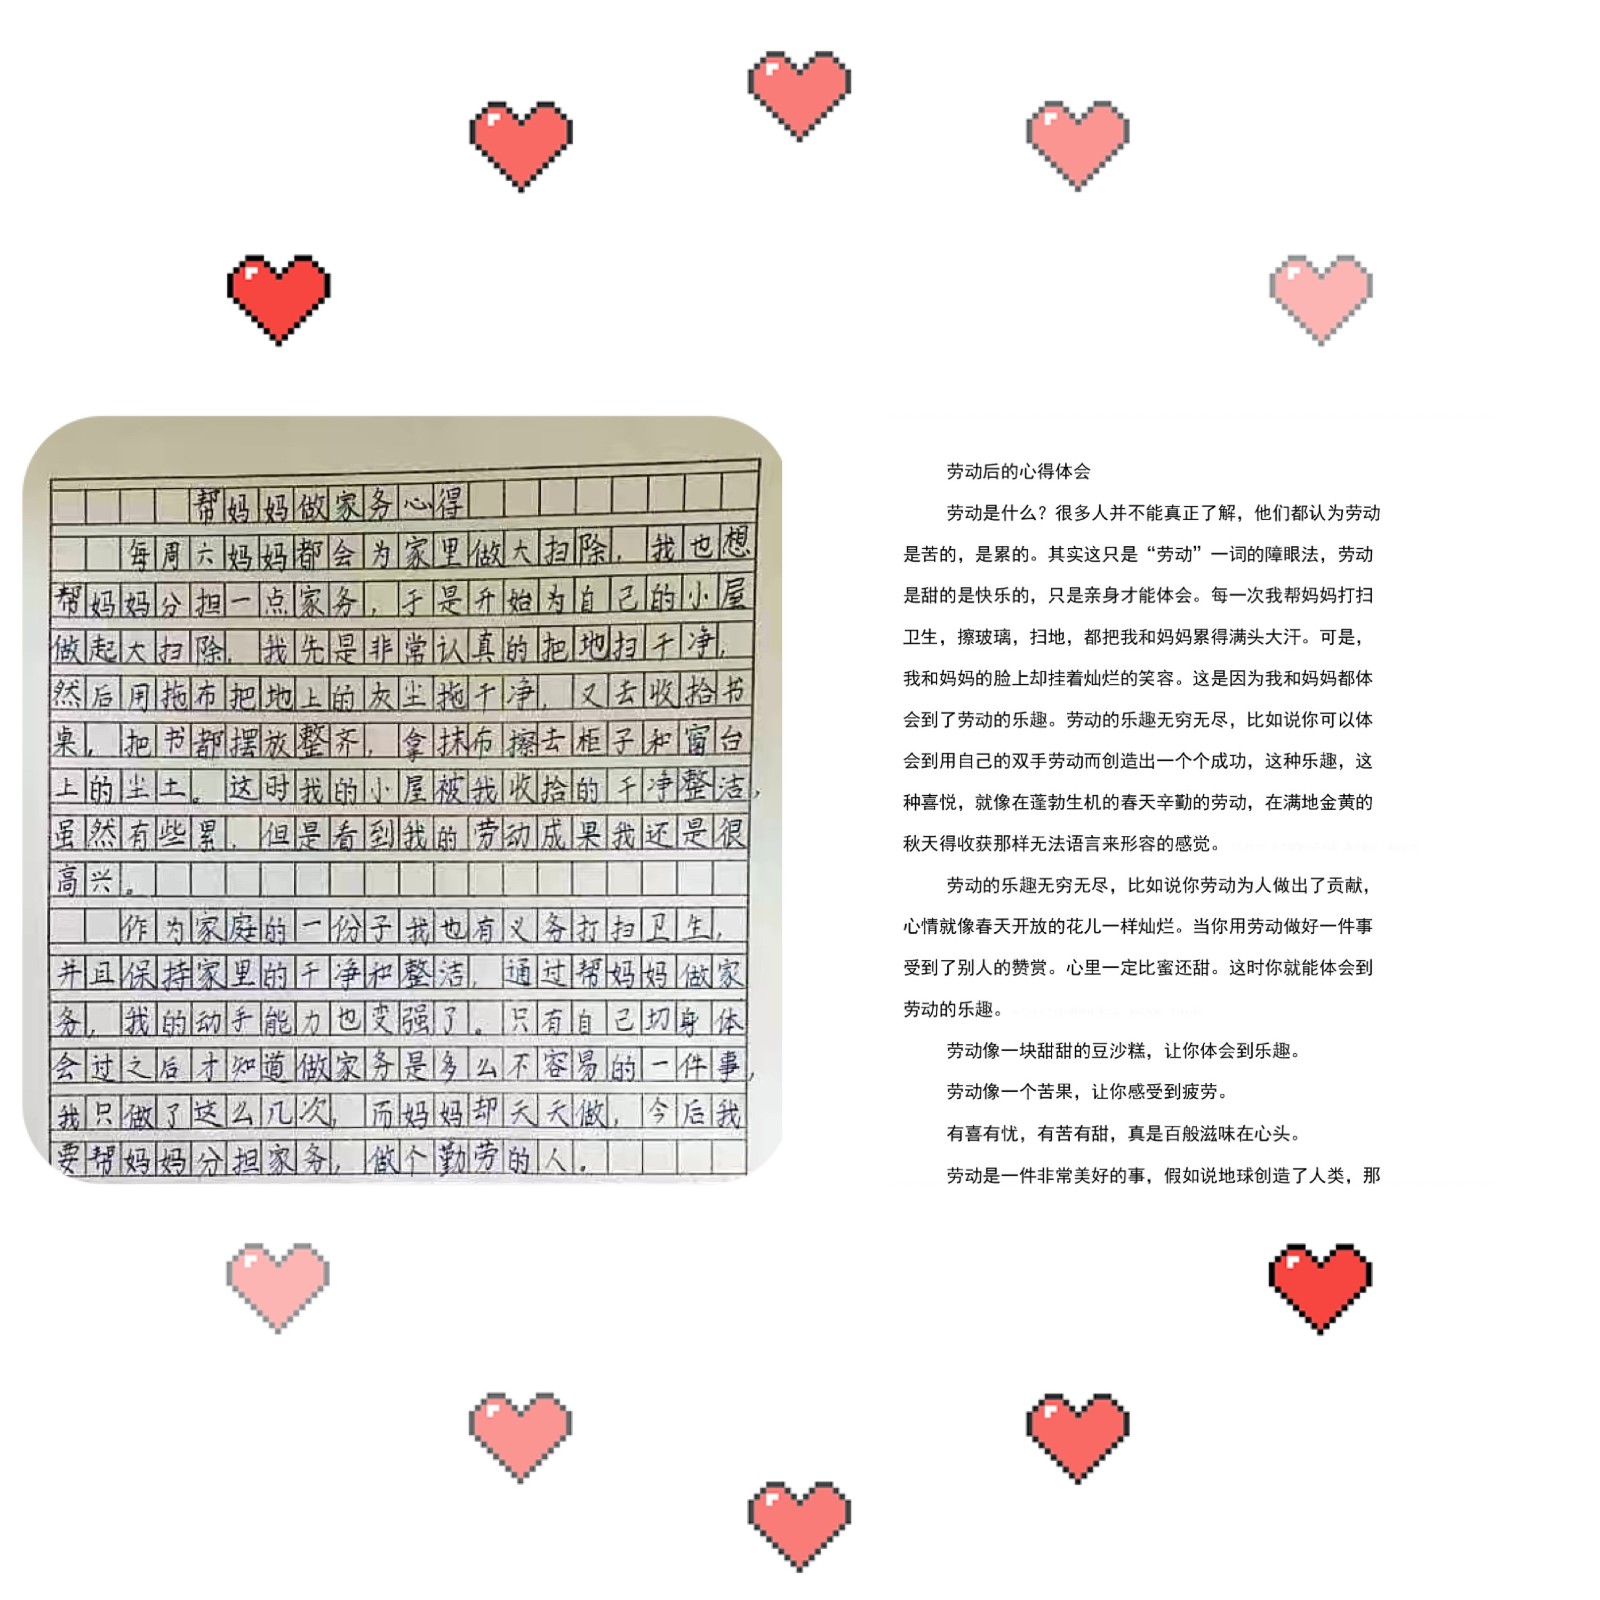 帮妈妈做家务心得
每周六妈妈都会为家里做大扫除，我也想
帮妈妈分担一点家务，于是开始为自己的小屋
做起大扫除，我先是非常认真的把地扫干净，
然后用拖布把地上的灰尘拖干净，又去收拾书
桌，把书都摆放整齐，拿抹布擦去柜子和窗台
上的尘土。这时我的小屋被我收拾的干净整洁，
虽然有些累，但是看到我的劳动成果我还是很
高兴。
作为家庭的一份子我也有义务打扫卫生，
并且保持家里的干净和整洁，通过帮妈妈做家
务，我的动手能力也变强了。只有自己切身体
会过之后才知道做家务是多么不容易的一件事，
我只做了这么几次，而妈妈却天天做，今后我
要帮妈妈分担家务，做个勤劳的人。
劳动后的心得体会
劳动是什么？很多人并不能真正了解，他们都认为劳动
是苦的，是累的。其实这只是“劳动”一词的障眼法，劳动
是甜的是快乐的，只是亲身才能体会。每一次我帮妈妈打扫
卫生，擦玻璃，扫地，都把我和妈妈累得满头大汗。可是，
我和妈妈的脸上却挂着灿烂的笑容。这是因为我和妈妈都体
会到了劳动的乐趣。劳动的乐趣无穷无尽，比如说你可以体
会到用自己的双手劳动而创造出一个个成功，这种乐趣，这
种喜悦，就像在蓬勃生机的春天辛勤的劳动，在满地金黄的
秋天得收获那样无法语言来形容的感觉。
劳动的乐趣无穷无尽，比如说你劳动为人做出了贡献，
心情就像春天开放的花儿一样灿烂。当你用劳动做好一件事
受到了别人的赞赏。心里一定比蜜还甜。这时你就能体会到
劳动的乐趣。
劳动像一块甜甜的豆沙糕，让你体会到乐趣。
劳动像一个苦果，让你感受到疲劳。
有喜有忧，有苦有甜，真是百般滋味在心头。
劳动是一件非常美好的事，假如说地球创造了人类，那